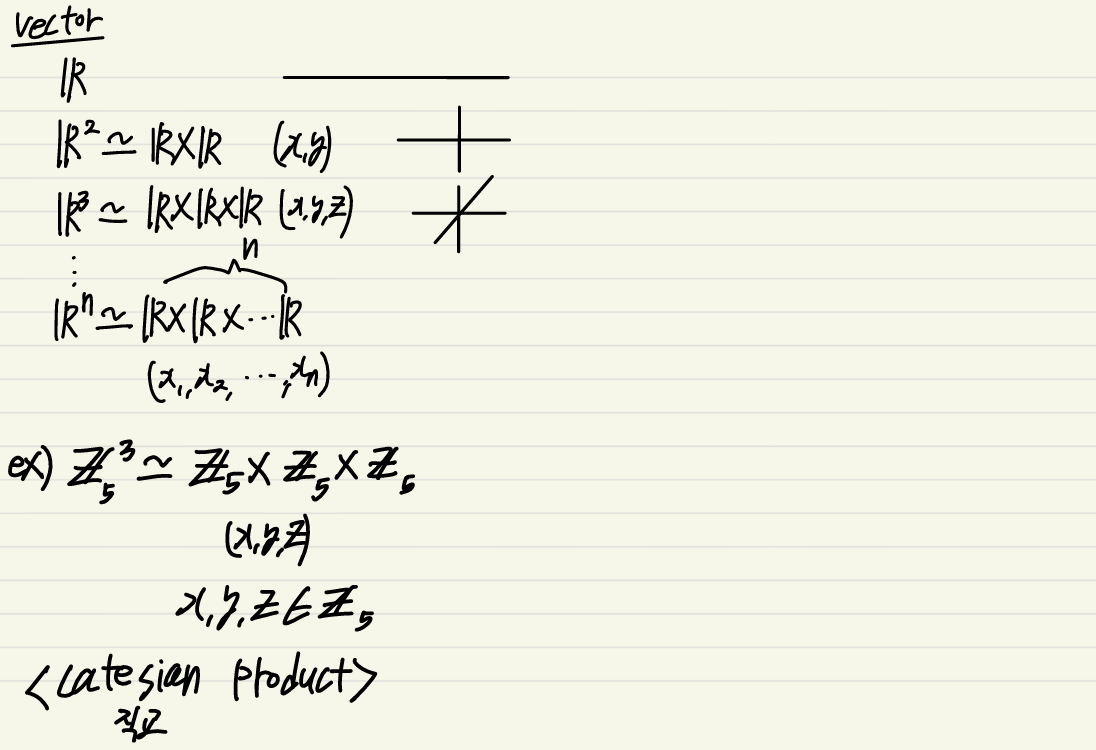 vector
ℝ
ℝ² ≃ ℝ×ℝ (x,y)
ℝ³ ≃ ℝ×ℝ×ℝ (x,y,z)
⋮
n
ℝⁿ ≃ ℝ×ℝ×⋯ℝ
(x₁,x₂,⋯,xₙ)
ex) ℤ₅³ ≃ ℤ₅×ℤ₅×ℤ₅
(x,y,z)
x,y,z∈ℤ₅
<catesian product>
직교